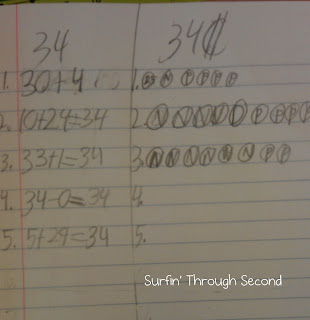 34 34¢
1. 30+4 1.
2. 10+24=34 2. N N N N D P P P P
3. 33+1=34 3. N N N N N N P P
4. 34-0=34 4.
5. 5+29=34 5.
Surfin' Through Second